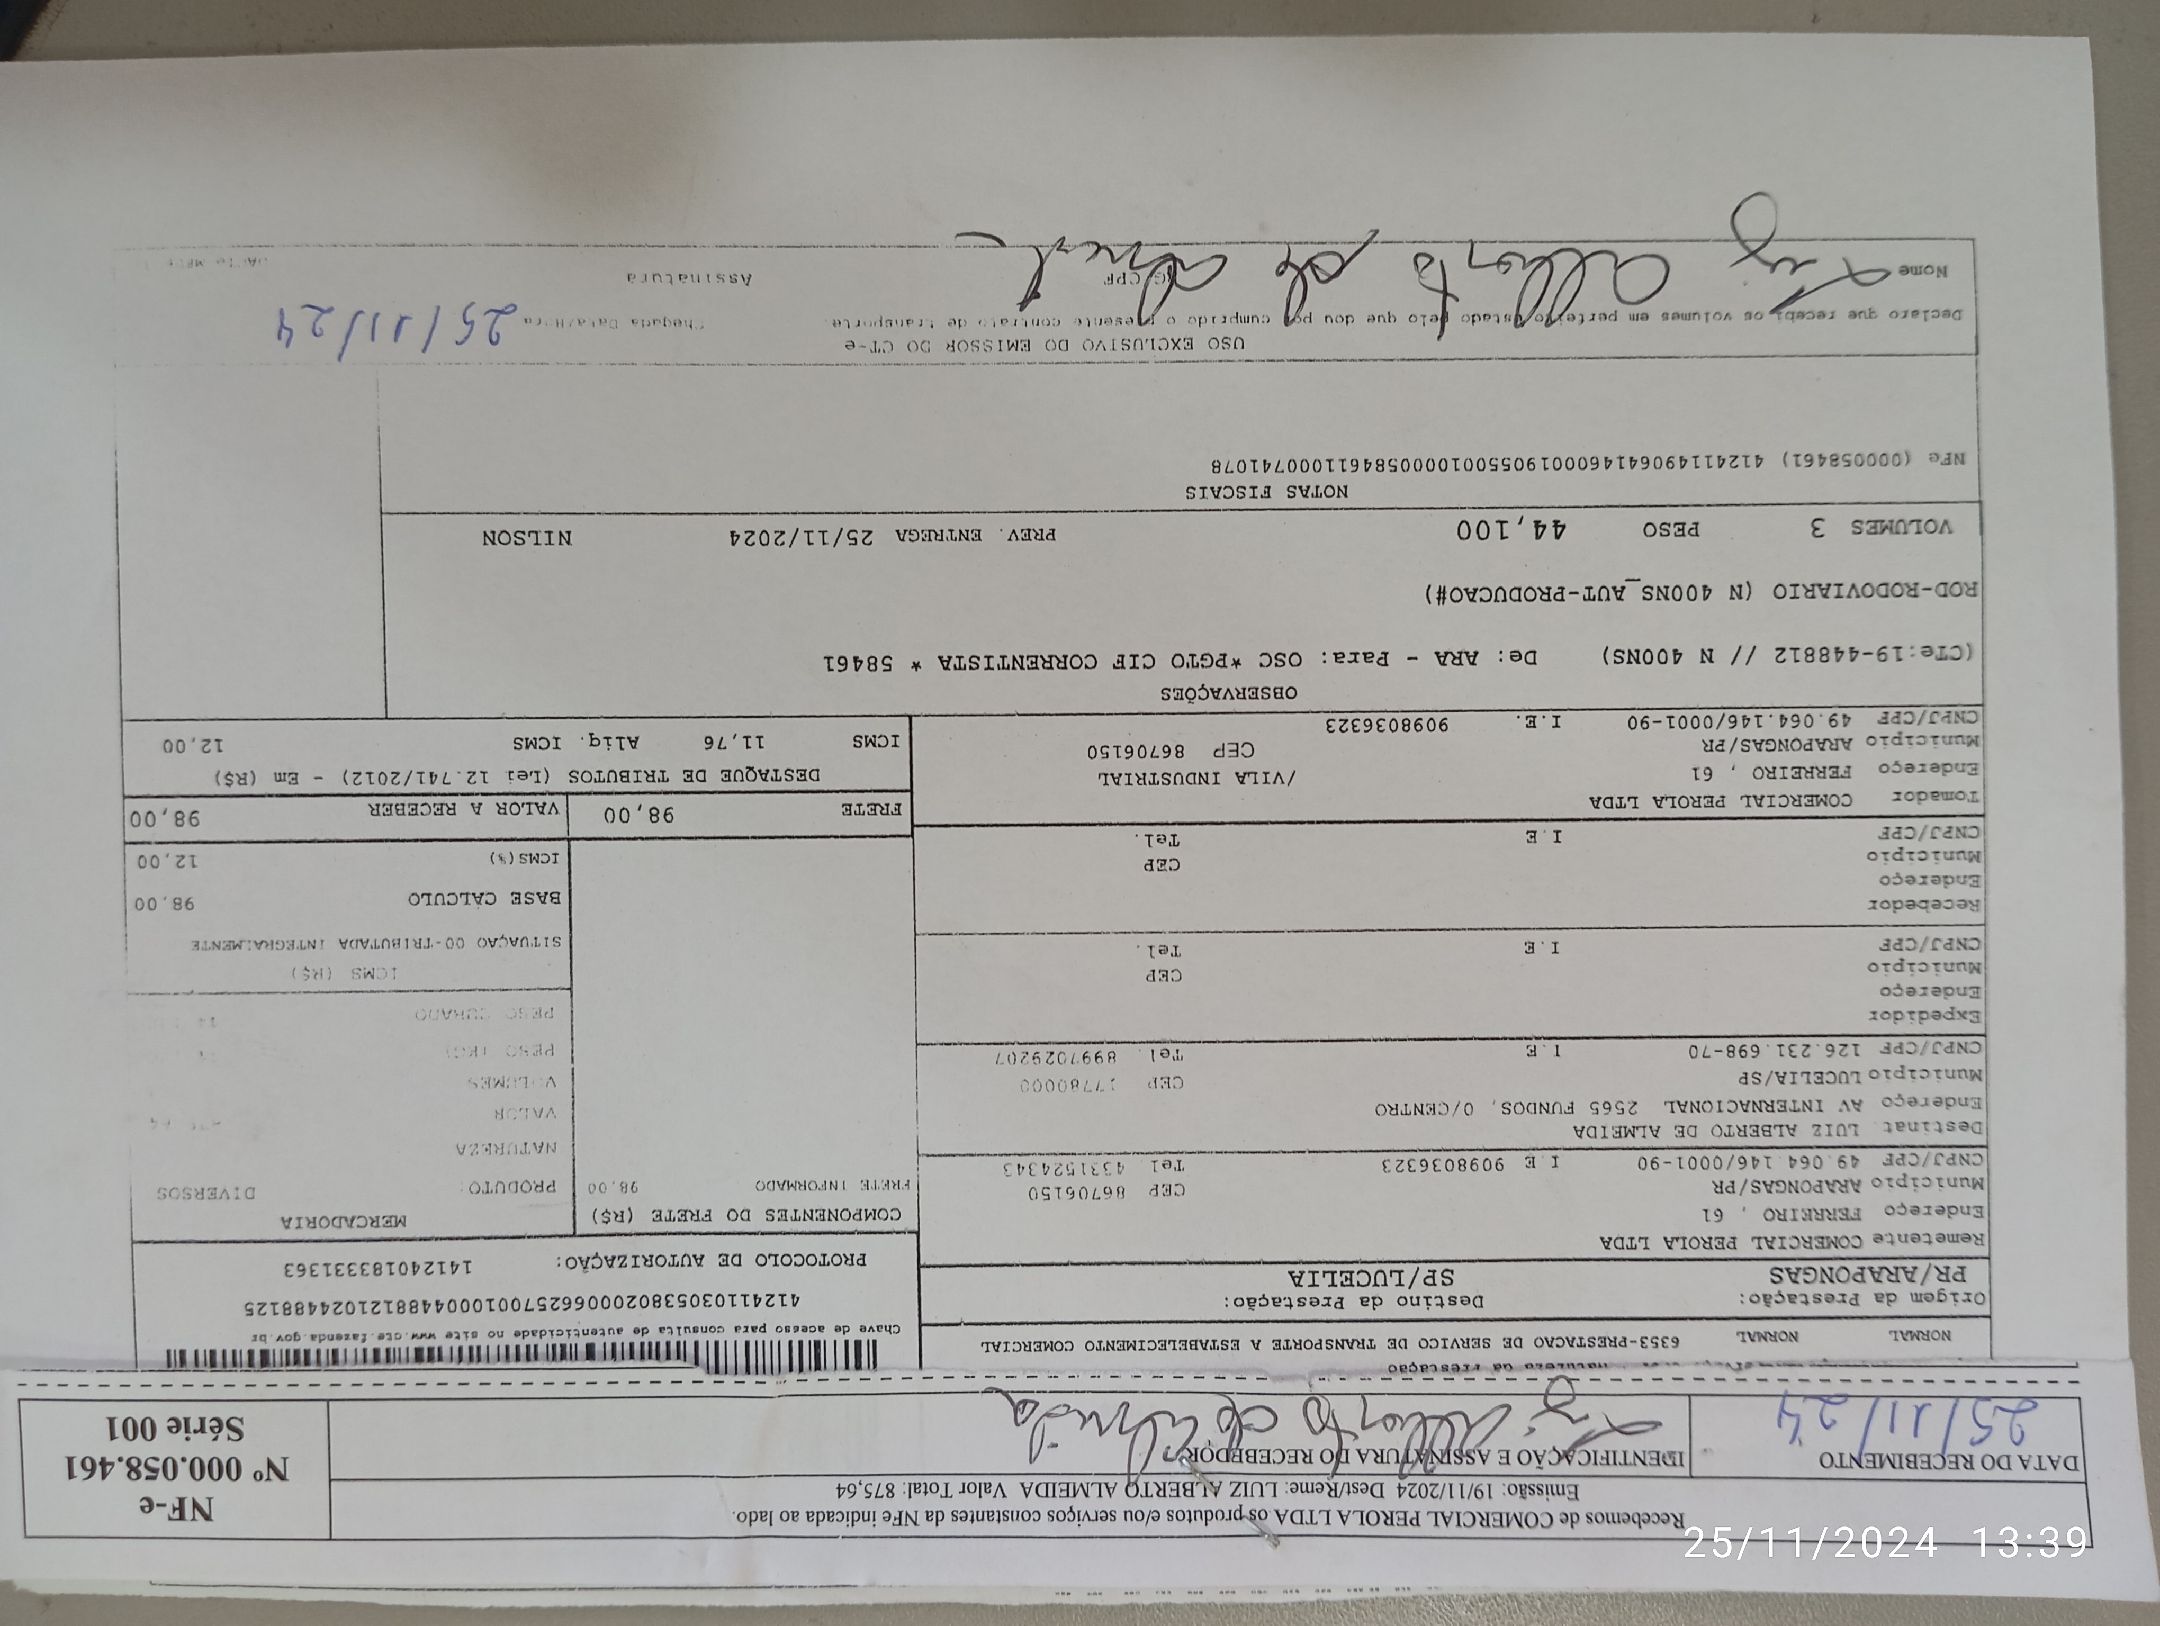 Recebemos de COMERCIAL PEROLA LTDA os produtos e/ou serviços constantes da NFe indicada ao lado.
Emissão: 19/11/2024 Dest/Reme: LUIZ ALBERTO ALMEIDA Valor Total: 875,64
DATA DO RECEBIMENTO
25/11/24
IDENTIFICAÇÃO E ASSINATURA DO RECEBEDOR
Luiz Alberto de Almeida
NF-e
Nº 000.058.461
Série 001
NORMAL NORMAL 6353-PRESTACAO DE SERVICO DE TRANSPORTE A ESTABELECIMENTO COMERCIAL
Origem da Prestação: Destino da Prestação:
PR/ARAPONGAS SP/LUCELIA
Chave de acesso para consulta de autenticidade no site www.cte.fazenda.gov.br
41241103053802000662570010004488121024488125
PROTOCOLO DE AUTORIZAÇÃO: 141240183331363
Remetente COMERCIAL PEROLA LTDA
Endereço FERREIRO , 61
Município ARAPONGAS/PR CEP 86706150
CNPJ/CPF 49.064.146/0001-90 I.E 9098036323 Tel 4331524343
Destinat. LUIZ ALBERTO DE ALMEIDA
Endereço AV INTERNACIONAL 2565 FUNDOS, 0/CENTRO
Município LUCELIA/SP CEP 17780000
CNPJ/CPF 126.231.698-70 I.E Tel. 8997029207
Expedidor
Endereço
Município CEP
CNPJ/CPF I.E Tel.
Recebedor
Endereço
Município CEP
CNPJ/CPF I.E Tel.
Tomador COMERCIAL PEROLA LTDA
Endereço FERREIRO , 61 /VILA INDUSTRIAL
Município ARAPONGAS/PR CEP 86706150
CNPJ/CPF 49.064.146/0001-90 I.E. 9098036323
COMPONENTES DO FRETE (R$)
FRETE INFORMADO 98,00
MERCADORIA
PRODUTO: DIVERSOS
NATUREZA
VALOR
VOLUMES
PESO (KG)
PESO CUBADO
ICMS (R$)
SITUAÇAO 00-TRIBUTADA INTEGRALMENTE
BASE CÁLCULO 98,00
ICMS(%) 12,00
FRETE 98,00 VALOR A RECEBER 98,00
DESTAQUE DE TRIBUTOS (Lei 12.741/2012) - Em (R$)
ICMS 11,76 Aliq. ICMS 12,00
OBSERVAÇÕES
(CTe:19-448812 // N 400NS) De: ARA - Para: OSC *PGTO CIF CORRENTISTA * 58461
ROD-RODOVIARIO (N 400NS_AUT-PRODUCAO#)
VOLUMES 3 PESO 44,100 PREV. ENTREGA 25/11/2024 NILSON
NOTAS FISCAIS
NFe (000058461) 41241149064146000190550010000584611000741078
USO EXCLUSIVO DO EMISSOR DO CT-e
Declaro que recebi os volumes em perfeito estado pelo que dou por cumprido o presente contrato de transporte. Chegada Data/Hora 25/11/24
Nome RG/CPF Assinatura
Luiz Alberto de Almeida
25/11/2024 13:39